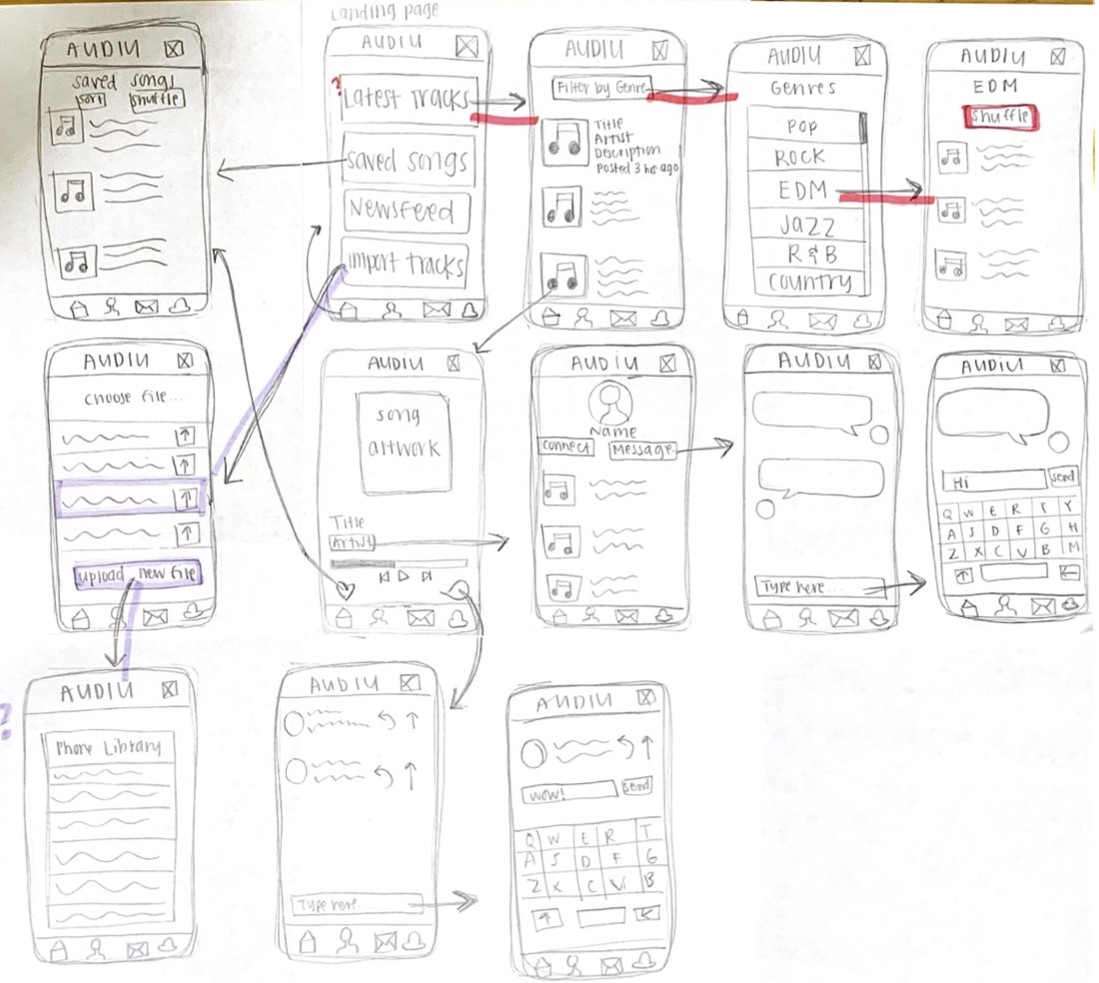 Landing page
AUDIU
saved songs
sort shuffle
AUDIU
Latest Tracks
saved songs
Newsfeed
import tracks
AUDIU
Filter by Genre
Title
Artist
Description
Posted 3 hr ago
AUDIU
Genres
Pop
Rock
EDM
Jazz
R & B
Country
AUDIU
EDM
shuffle
AUDIU
choose file...
upload new file
AUDIU
song
artwork
Title
Artist
AUDIU
Name
connect Message
AUDIU
Type here...
AUDIU
Hi send
Q W E R T Y
A S D F G H
Z X C V B M
?
AUDIU
Phone Library
AUDIU
Type here....
AUDIU
wow! send
Q W E R T
A S D F G
Z X C V B